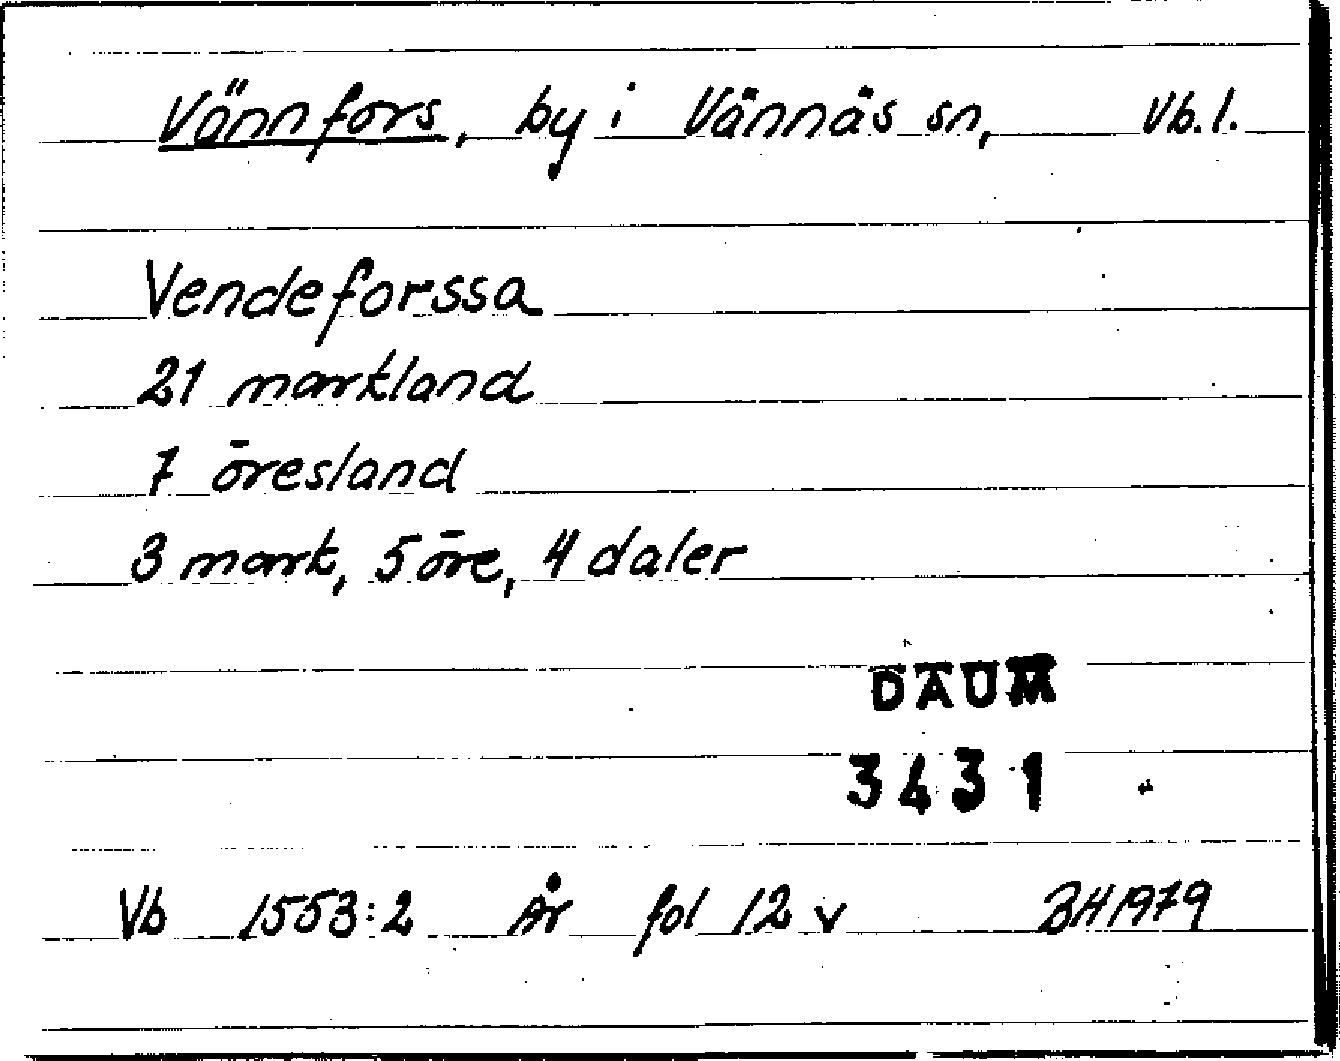 Vännfors, by i Vännäs sn, Vb.l.
Vendeforssa
21 markland
7 öresland
3 mark, 5 öre, 4 daler
DAUM
3431
Vb 1553:2 År fol 12 v BH 1979